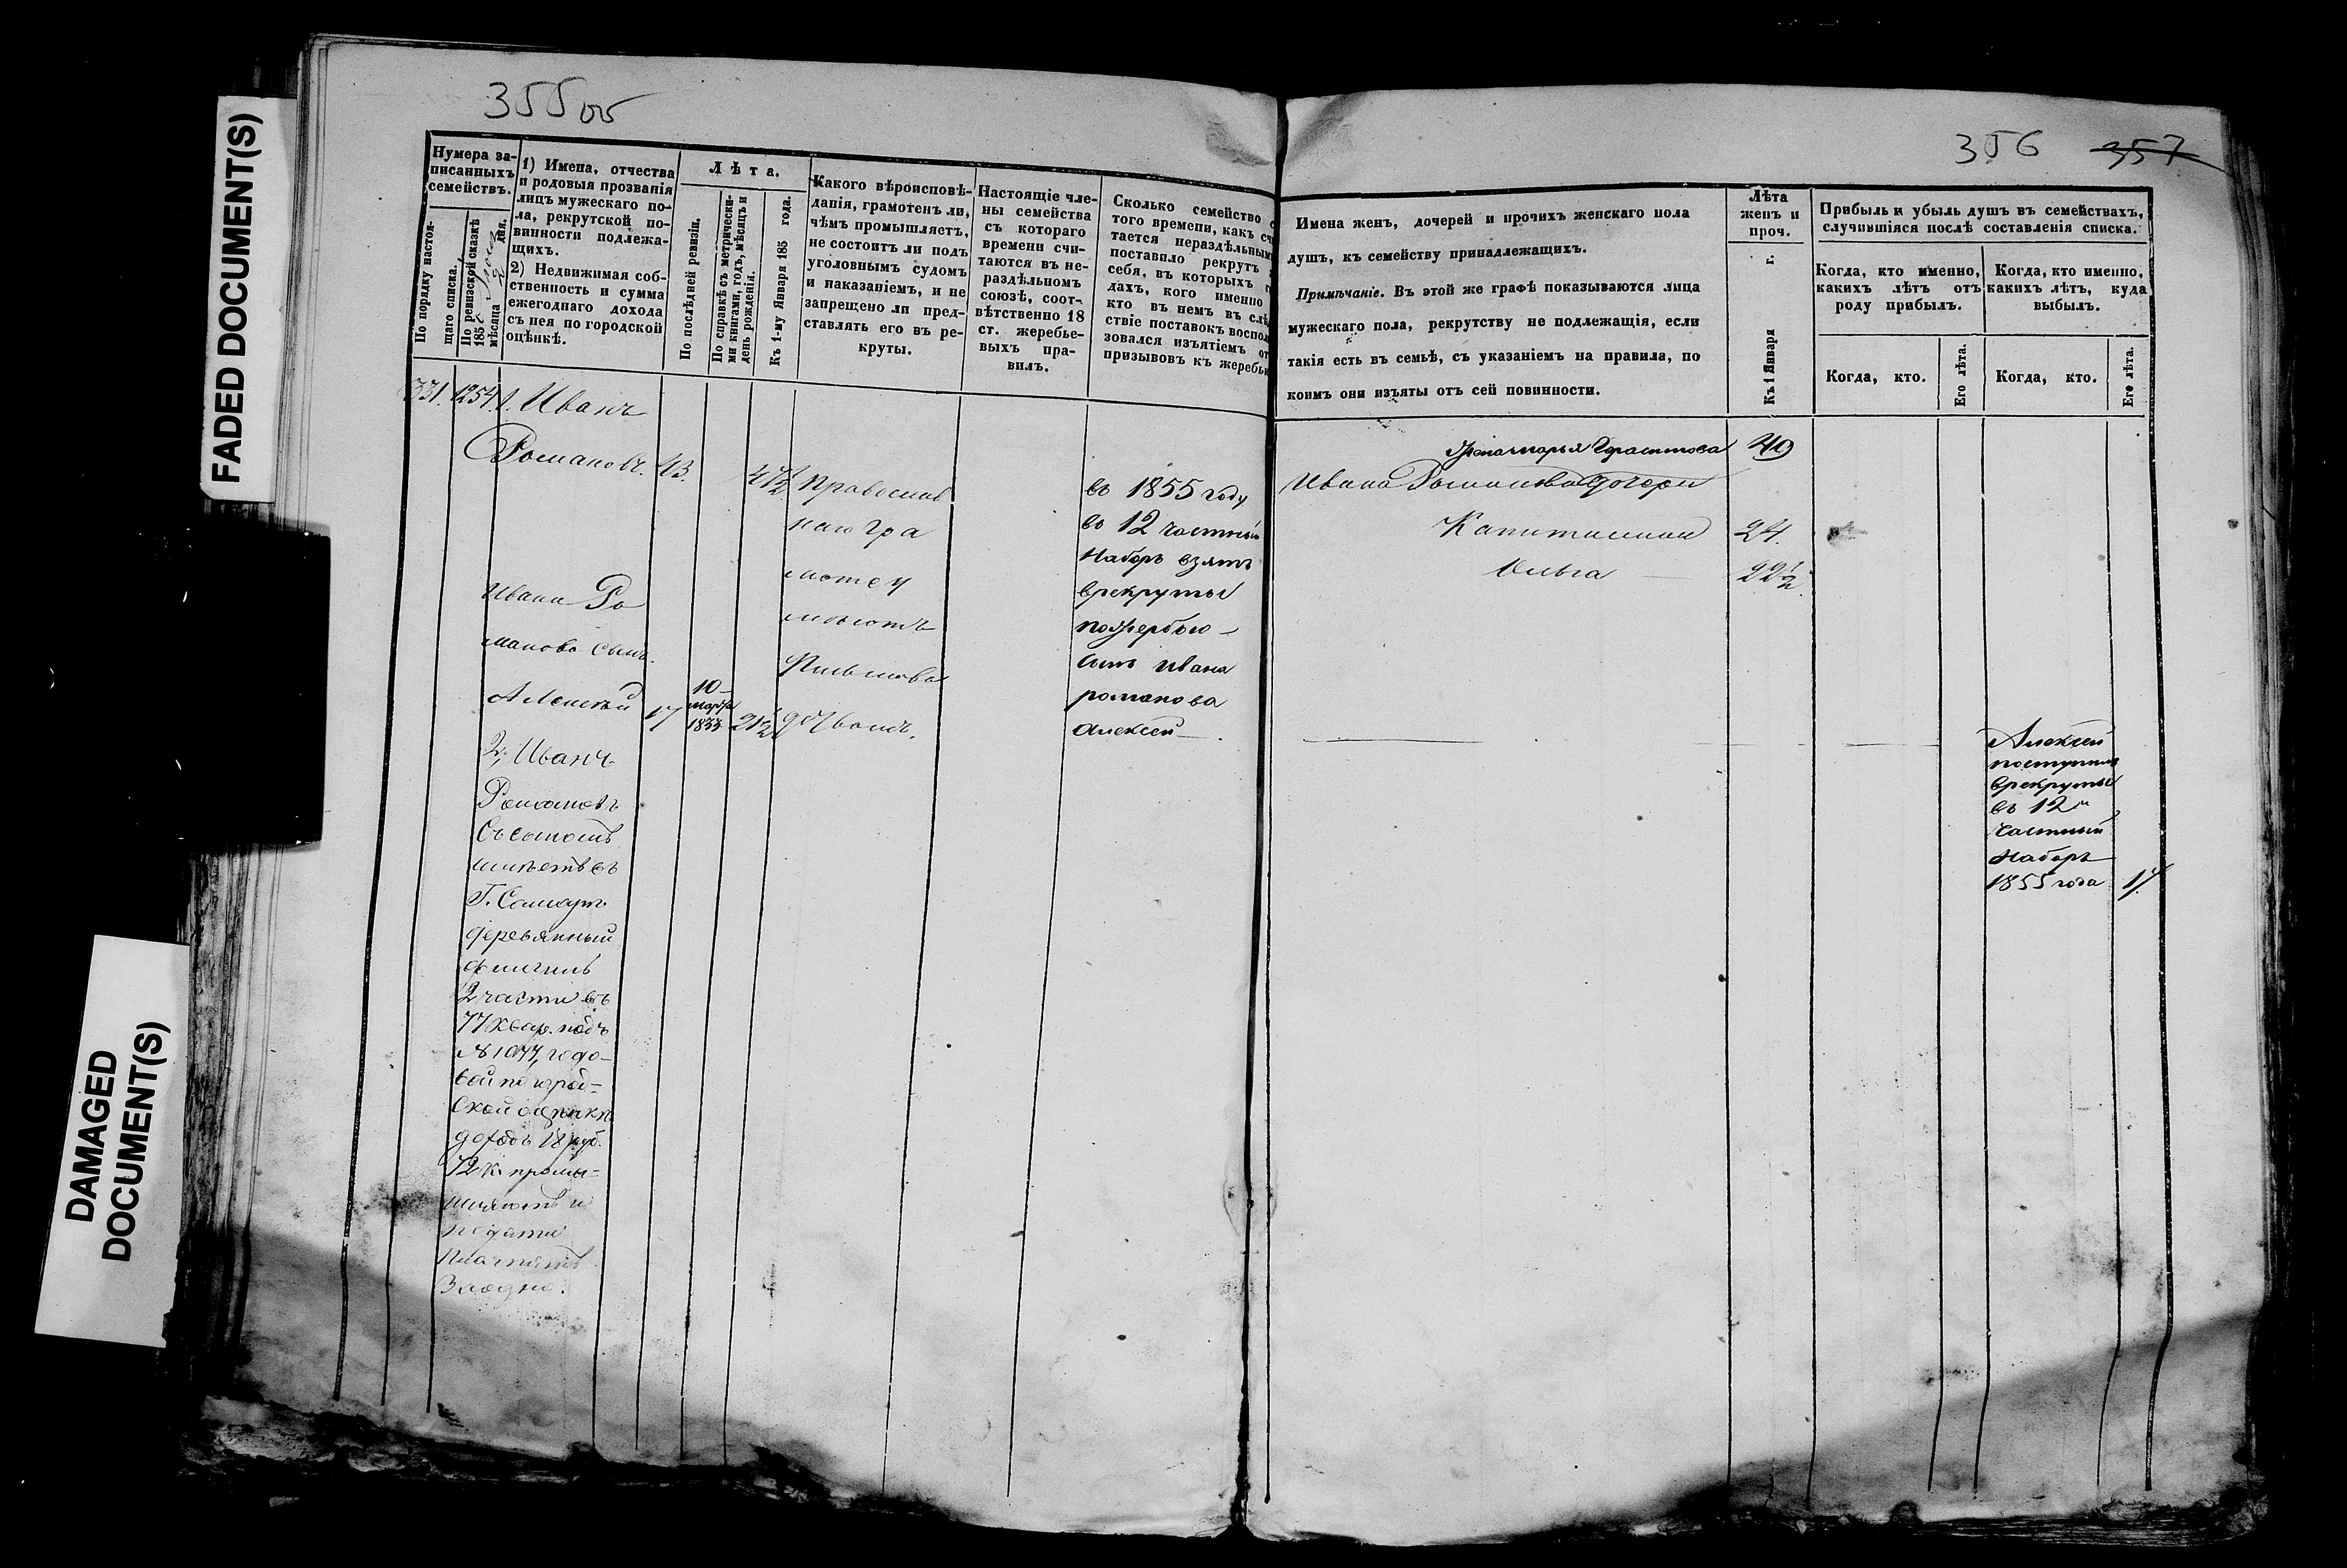 FADED DOCUMENT(S)
DAMAGED
DOCUMENT(S)
355об
Нумера за-
писанныхъ
семействъ.
По порядку настоя-
щаго списка.
По ревизской сказкѣ
185
мѣсяца дня.
1) Имена, отчества
и родовыя прозванія
лицъ мужескаго по-
ла, рекрутской по-
винности подлежа-
щихъ.
2) Недвижимая соб-
ственность и сумма
ежегоднаго дохода
съ нея по городской
оцѣнкѣ.
Лѣта.
По послѣдней ревизіи.
По справкѣ съ метрически-
ми книгами, годъ, мѣсяцъ и
день рожденія.
Къ 1-му Января 185 года.
Какого вѣроисповѣ-
данія, грамотенъ ли,
чѣмъ промышляетъ,
не состоитъ ли подъ
уголовнымъ судомъ
и наказаніемъ, и не
запрещено ли пред-
ставлять его въ ре-
круты.
Настоящіе чле-
ны семейства
съ котораго
времени счи-
таются въ не-
раздѣльномъ
союзѣ, соот-
вѣтственно 18
ст. жеребье-
выхъ пра-
вилъ.
Сколько семейство с
того времени, какъ счи
тается нераздѣльнымъ
поставило рекрутъ
себя, въ которыхъ г
дахъ, кого именно
кто въ немъ въ слѣ
ствіе поставокъ воспол
зовался изъятіемъ от
призывовъ къ жеребь
331. 1254. 1. Иванъ
Романовъ. 43. 47½ Православ
наго гра
мотеу
Ивана Ро
манова сынъ
Алексѣй 17
10
марта
1833 21½
въ 1855 году
въ 12 частный
наборъ взятъ
врекруты
пожеребью
сынъ Ивана
романова
Алексей
2, Иванъ
Романовъ
имѣетъ въ
Г. Самарѣ
деревянный
флигиль
2 части въ
77 квар. подъ
№ 1077, годо-
вой по город-
ской оценкѣ
доходъ 18 руб.
72 к. промы-
шляютъ и
подати
платятъ
Заодно.
356 357
Имена женъ, дочерей и прочихъ женскаго пола
душъ, къ семейству принадлежащихъ.
Примѣчаніе. Въ этой же графѣ показываются лица
мужескаго пола, рекрутству не подлежащія, если
такія есть въ семьѣ, съ указаніемъ на правила, по
коимъ они изъяты отъ сей повинности.
Лѣта
женъ и
проч.
Къ 1 Января г.
Прибыль и убыль душъ въ семействахъ,
случившіяся послѣ составленія списка.
Когда, кто именно,
какихъ лѣтъ отъ
роду прибылъ.
Когда, кто именно,
какихъ лѣтъ, куда
выбылъ.
Когда, кто.
Его лѣта.
Когда, кто.
Его лѣта.
Жена марья 49
Ивана Романова дочери
Капиталина 24.
Ольга 22½
Алексей
поступилъ
врекруты
въ 12й
частный
наборъ
1855 года 17